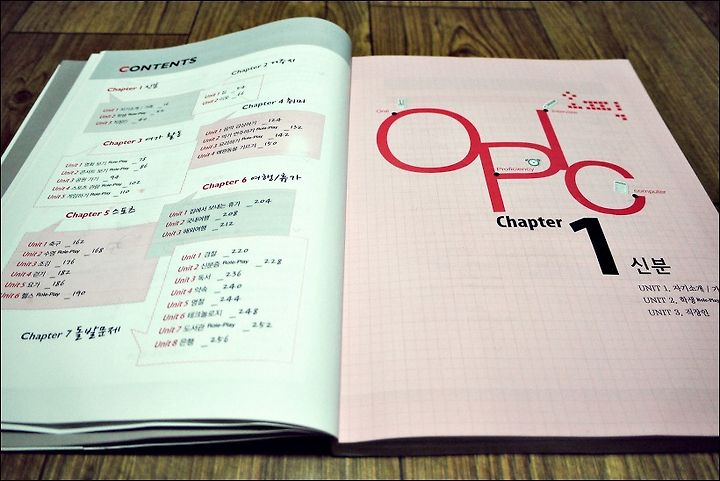 CONTENTS
Chapter 1 신분
Unit 1 자기소개 / 가족 _ 16
Unit 2 학생 Role-Play
Unit 3 직장인
Chapter 2 거주지
Unit 1 집
Unit 2
Chapter 3 여가 활동
Unit 1 영화 보기 Role-Play _ 78
Unit 2 콘서트 보기 Role-Play _ 86
Unit 3 공원 가기 _ 94
Unit 4 스포츠 관람 Role-Play _ 102
Unit 5 게임하기 Role-Play _ 110
Chapter 4 취미
Unit 1 음악 감상하기 _ 124
Unit 2 악기 연주하기 Role-Play _ 132
Unit 3 요리하기 Role-Play _ 142
Unit 4 애완동물 기르기 _ 150
Chapter 5 스포츠
Unit 1 축구 _ 162
Unit 2 수영 Role-Play _ 168
Unit 3 조깅 _ 176
Unit 4 걷기 _ 182
Unit 5 요가 _ 186
Unit 6 헬스 Role-Play _ 190
Chapter 6 여행/휴가
Unit 1 집에서 보내는 휴가 _ 204
Unit 2 국내여행 _ 208
Unit 3 해외여행 _ 212
Chapter 7 돌발문제
Unit 1 경찰 _ 220
Unit 2 신분증 Role-Play _ 228
Unit 3 독서 _ 236
Unit 4 약속 _ 240
Unit 5 명절 _ 244
Unit 6 테크놀로지 _ 248
Unit 7 도서관 Role-Play _ 252
Unit 8 은행 _ 256
OPIc
Oral
Proficiency
Interview
computer
Chapter 1 신분
UNIT 1. 자기소개 / 가
UNIT 2. 학생 Role-Play
UNIT 3. 직장인